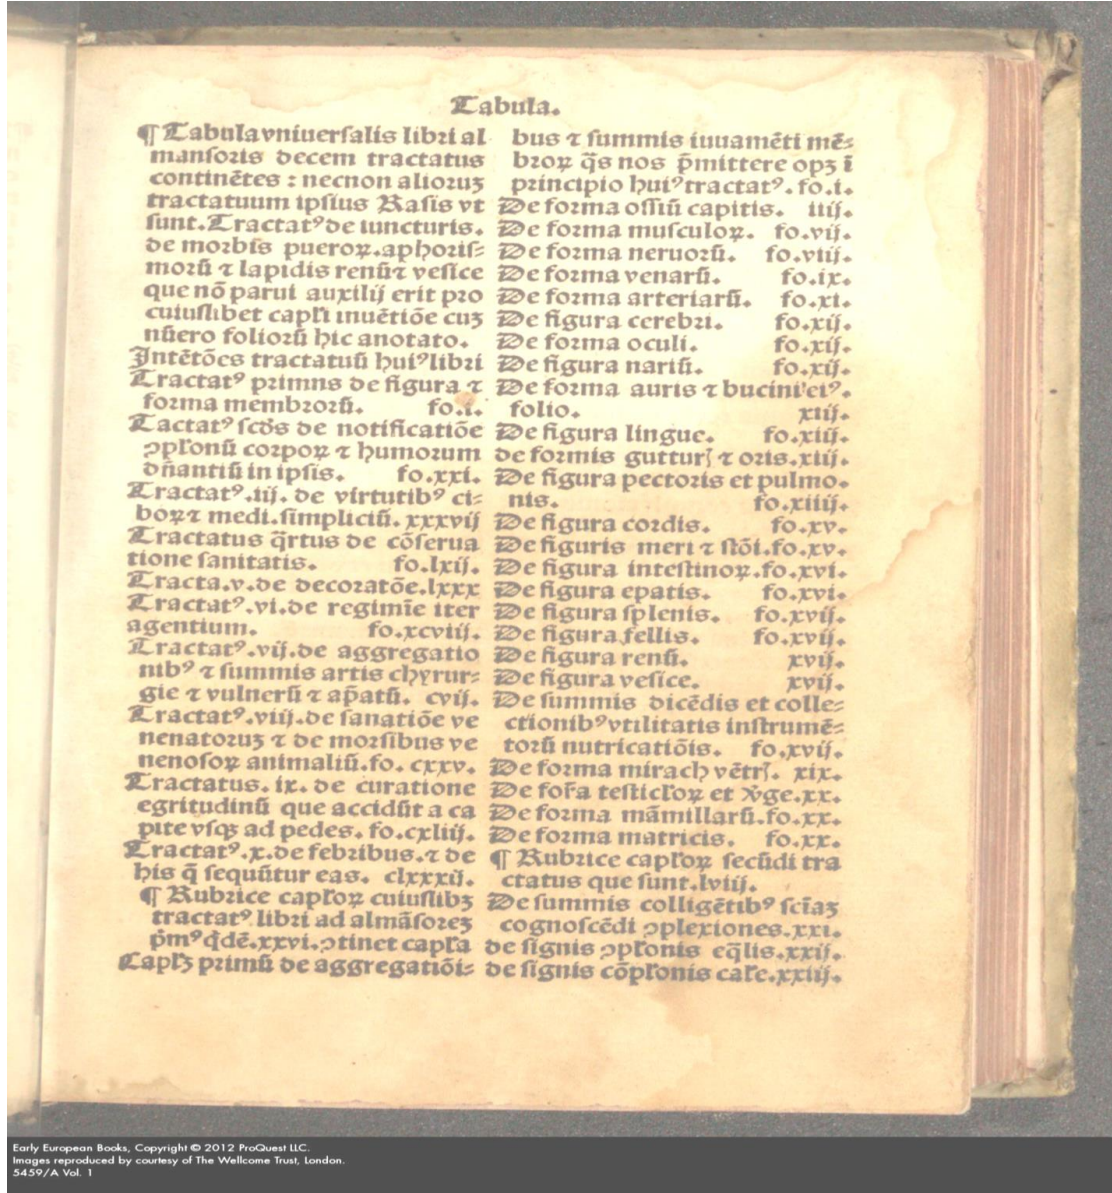 Tabula.
¶ Tabula vniuersalis libri al
mansoris decem tractatus
continẽtes : necnon alioruꝫ
tractatuum ipsius Rasis vt
sunt. Tractatꝰ de iuncturis.
de morbis pueroꝝ. aphoris⸗
morũ ⁊ lapidis renũ ⁊ vesice
que nõ parui auxilij erit pro
cuiuslibet capl'i inuẽtiõe cuꝫ
nũero foliorũ hic anotato.
Intẽtões tractatuũ huiꝰ libri
Tractatꝰ primns de figura ⁊
forma membrorũ. fo.i.
Tactatꝰ scd's de notificatiõe
ↄpl'onũ corpoꝝ ⁊ humorum
dñantiũ in ipsis. fo.xxi.
Tractatꝰ .iij. de virtutibꝰ ci⸗
boꝝ ⁊ medi. simpliciũ. xxxvij
Tractatus q̃rtus de cõserua
tione sanitatis. fo.lxij.
Tracta.v.de decoratõe.lxxx
Tractatꝰ.vi.de regimĩe iter
agentium. fo.xcviij.
Tractatꝰ.vij.de aggregatio
nibꝰ ⁊ summis artis chyrur⸗
gie ⁊ vulnerũ ⁊ ap̃atũ. cvij.
Tractatꝰ.viij.de sanatiõe ve
nenatoruꝫ ⁊ de morsibus ve
nenosoꝝ animaliũ.fo. cxxv.
Tractatus. ix. de curatione
egritudinũ que accidũt a ca
pite vsqꝫ ad pedes. fo.cxliij.
Tractatꝰ.x.de febribus.⁊ de
his q̃ sequũtur eas. clxxxij.
¶ Rubrice capl'oꝝ cuiuslibꝫ
tractatꝰ libri ad almãsoreꝫ
p̃mꝰ q̃dẽ.xxvi.ↄtinet capl'a
Capl'ꝫ primũ de aggregatiõi⸗
bus ⁊ summis iuuamẽti mẽ⸗
broꝝ q̃s nos p̃mittere opꝫ ĩ
principio huiꝰ tractatꝰ. fo.i.
De forma ossiũ capitis. iiij.
De forma musculoꝝ. fo.vij.
De forma neruorũ. fo.viij.
De forma venarũ. fo.ix.
De forma arteriarũ. fo.xi.
De figura cerebri. fo.xij.
De forma oculi. fo.xij.
De figura nariũ. fo.xij.
De forma auris ⁊ bucini eiꝰ.
folio. xiij.
De figura lingue. fo.xiij.
de formis guttur' ⁊ oris.xiij.
De figura pectoris et pulmo.
nis. fo.xiiij.
De figura cordis. fo.xv.
De figuris meri ⁊ stõi.fo.xv.
De figura intestinoꝝ.fo.xvi.
De figura epatis. fo.xvi.
De figura splenis. fo.xvij.
De figura fellis. fo.xvij.
De figura renũ. xvij.
De figura vesice. xvij.
De summis dicẽdis et colle⸗
ctionibꝰ vtilitatis instrumẽ⸗
torũ nutricatiõis. fo.xvij.
De forma mirach vẽtr'. xix.
De for̃a testicl'oꝝ et ṽge.xx.
De forma mãmillarũ.fo.xx.
De forma matricis. fo.xx.
¶ Rubrice capl'oꝝ secũdi tra
ctatus que sunt.lviij.
De summis colligẽtibꝰ scĩaꝫ
cognoscẽdi ↄplexiones.xxi.
de signis ↄpl'onis eq̃lis.xxij.
de signis cõpl'onis cal'e.xxiij.
Early European Books, Copyright © 2012 ProQuest LLC.
Images reproduced by courtesy of The Wellcome Trust, London.
5459/A Vol. 1